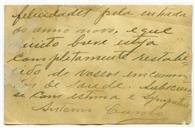 felicidades pela entrada
do anno novo, e que
muito breve esteja
completamente restabe
cido do vosso incommo
do de saude. Subscrevo
se com estima e sympathia
Antonio Cunha